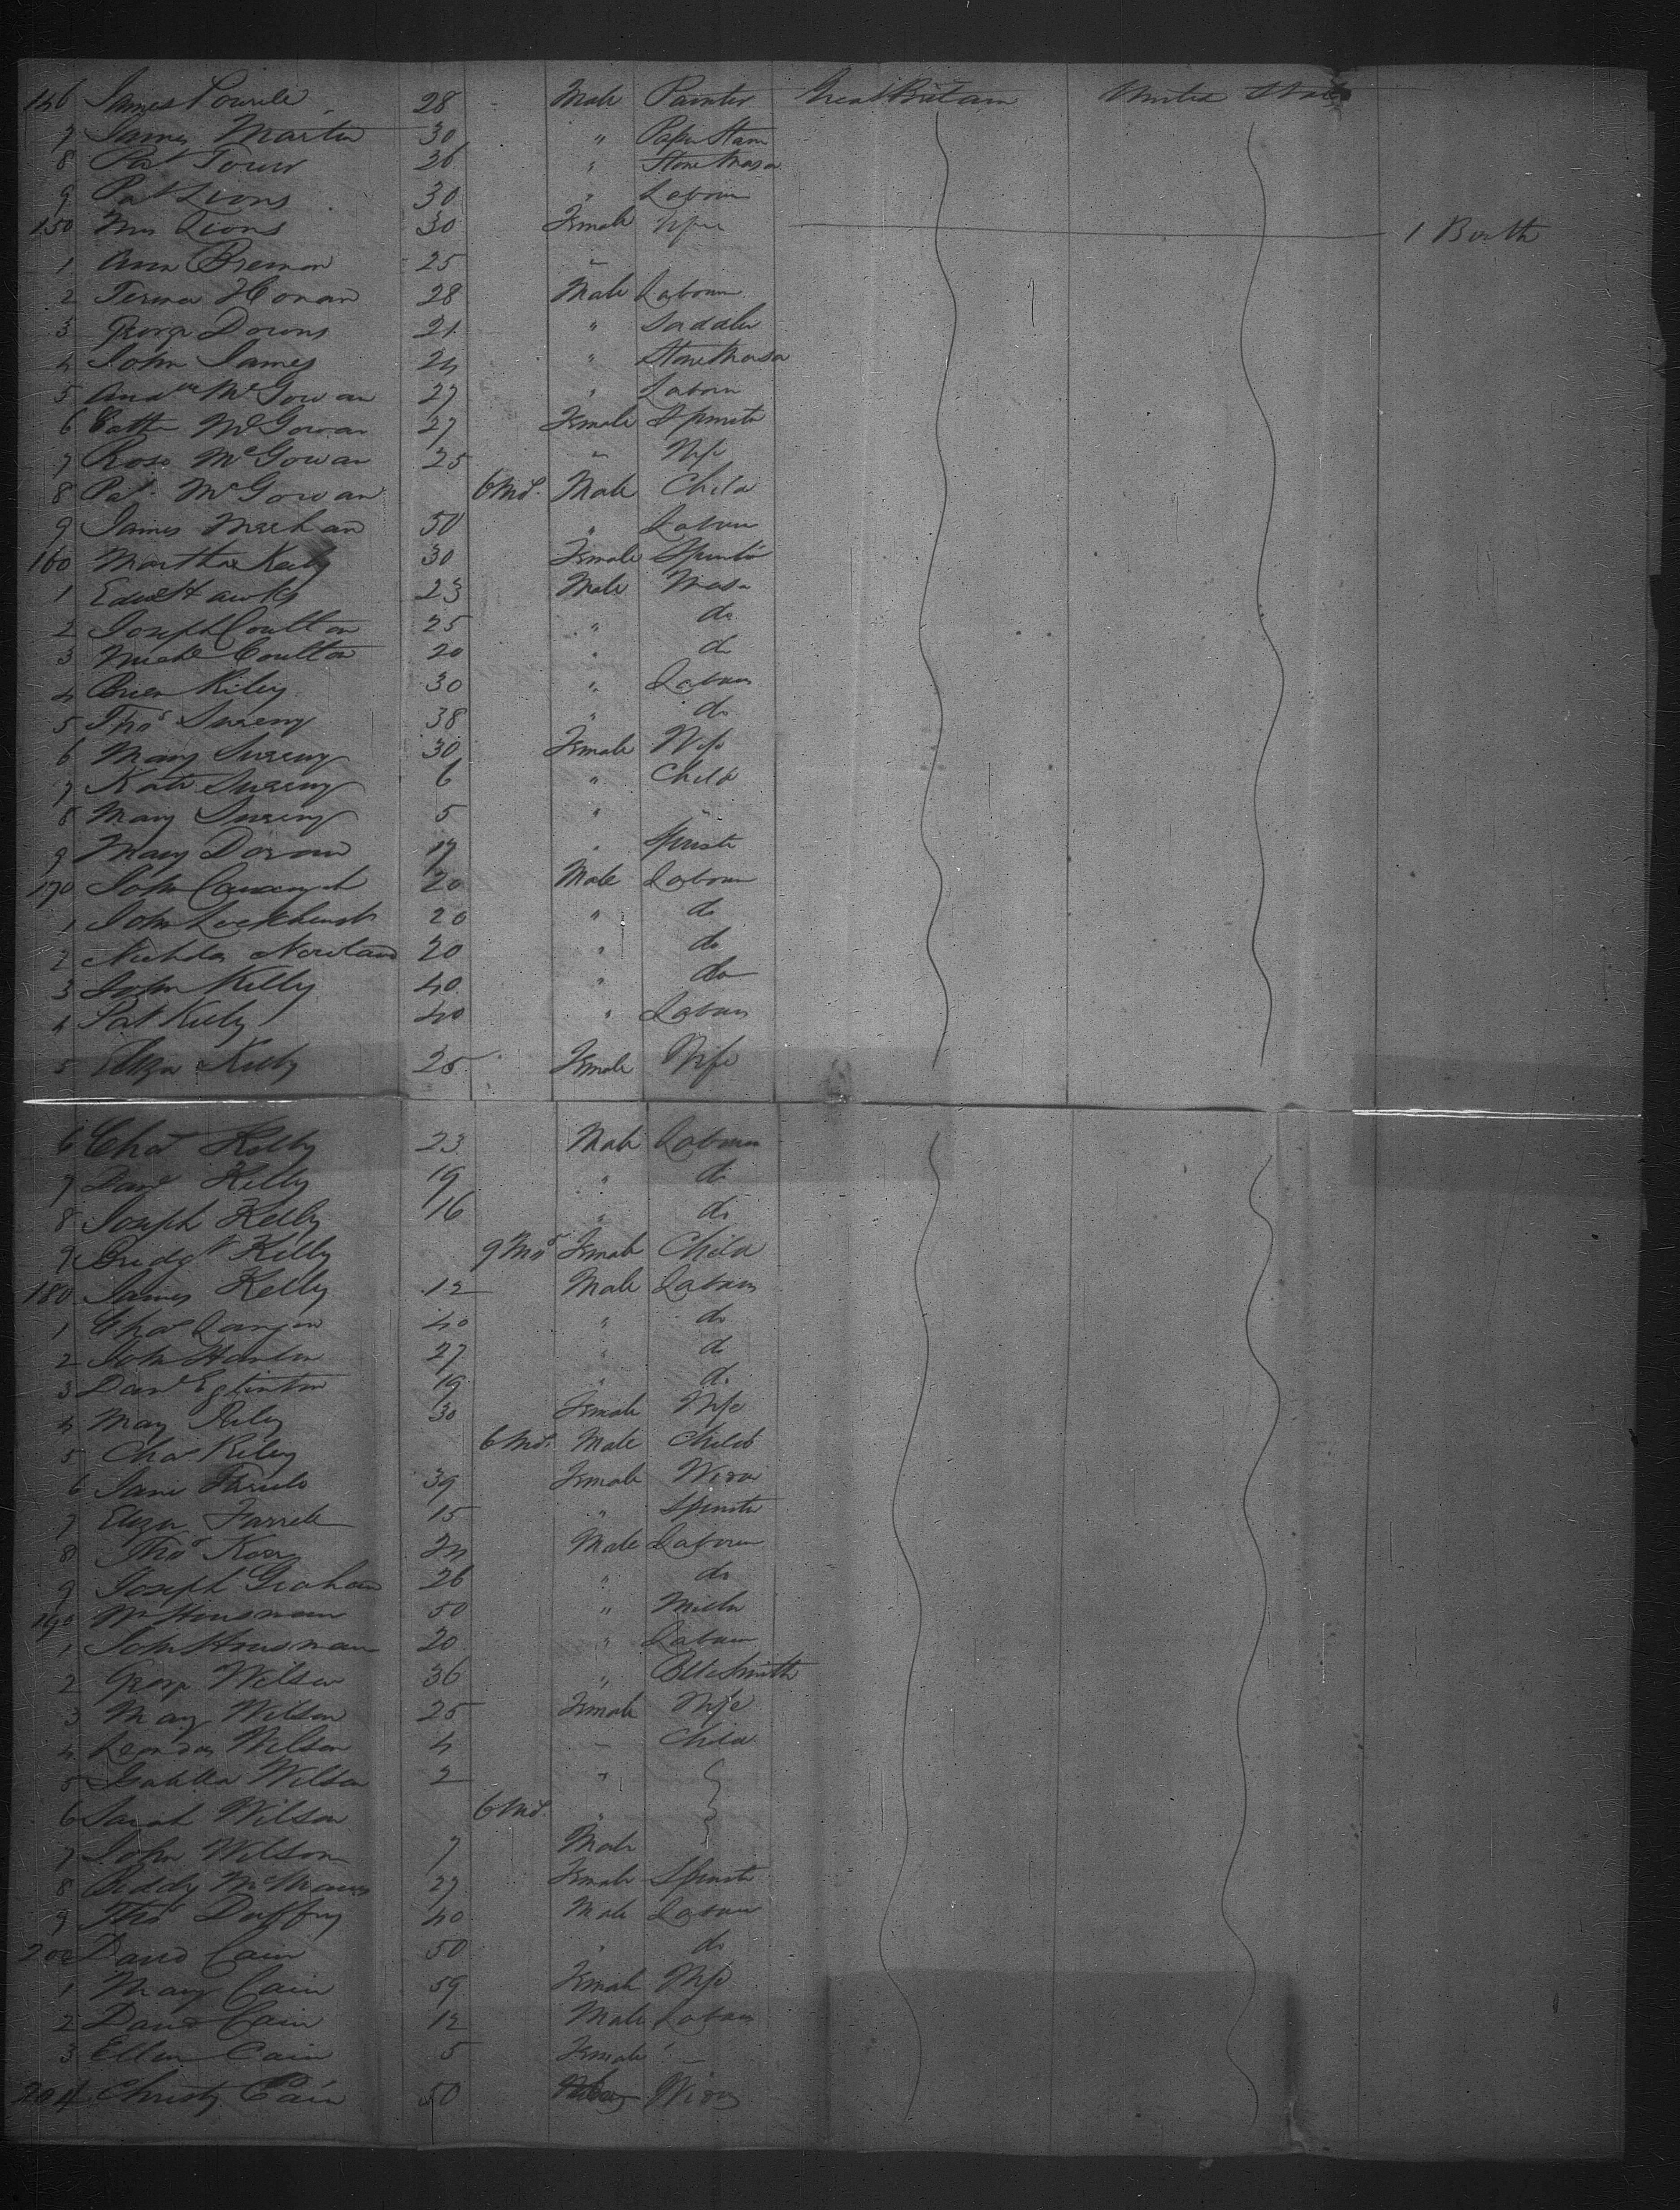 146 James Powrele 28 Male Painter Great Britain United States
7 James Martin 30 " Paper Stain
8 Pat Tour 26 " Stone Mason
9 Pat Lions 30 " Labour
150 Mrs Lions 30 Female Wife 1 Birth
1 Ann Breman 25 "
2 Honan 28 Male Labour
3 George Downs 21 " Saddler
4 John James 24 " Stone Mason
5 Andw McGowan 27 " Labour
6 Cath McGowan 27 Female Spinster
7 Rose McGowan 25 " Wife
8 Pat McGowan 6 Ms. Male Child
9 James Meehan 50 " Labour
160 Martha Kelly 30 Female Spinster
1 Edwd Hawks 23 Male Mason
2 Joseph Coulton 25 " do
3 Michl Coulton 20 " do
4 Brien Riley 30 " Labour
5 Thos Sweeny 38 " do
6 Mary Sweeny 30 Female Wife
7 Kate Sweeny 6 " Child
8 Mary Sweeny 5 " "
9 Mary Doran 17 " Spinst
170 John Cavanagh 20 Male Labour
1 John Lockhurst 20 " do
2 Nicholas Nowland 20 " do
3 John Kelly 40 " do
4 Pat Kelly 40 " Labour
5 Eliza Kelly 25 Female Wife
6 Chas Kelly 23 Male Labour
7 Danl Kelly 19 " do
8 Joseph Kelly 16 " do
9 Bridgt Kelly 9 Mos Female Child
180 James Kelly 12 Male Labour
1 Chas Langan 40 " do
2 John Hanlon 27 " do
3 Danl Eglinton 19 " do
4 Mary Riley 30 Female Wife
5 Chas Riley 6 Ms. Male Child
6 Jane Farrele 39 Female Widow
7 Eliza Farrele 15 " Spinster
8 Thos 24 Male Labour
9 Joseph Graham 26 " do
190 Wm Housman 50 " Miller
1 John Housman 20 " Labour
2 George Wilson 36 " Smith
3 Mary Wilson 25 Female Wife
4 Wilson 4 " Child
5 Isabella Wilson 2 "
6 Sarah Wilson 6 Ms. "
7 John Wilson 7 Male
8 Biddy McManus 27 Female Spinster
9 Thos Duffy 40 Male Labour
200 David Cain 50 " do
1 Mary Cain 59 Female Wife
2 David Cain 12 Male Labour
3 Ellen Cain 5 Female
204 Christy Cain 50 Widow